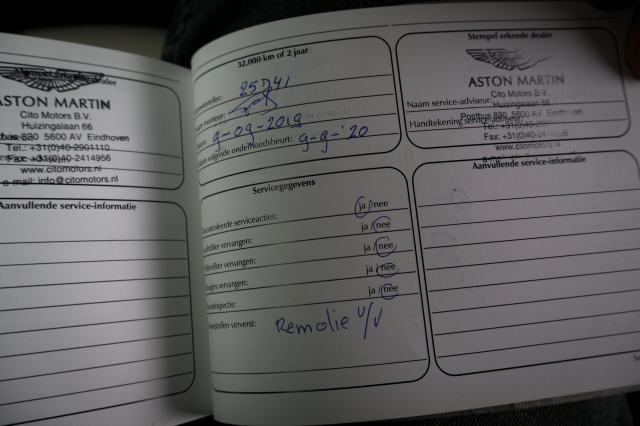 Stempel erkende dealer
ASTON MARTIN
Cito Motors B.V.
Huizingalaan 66
Postbus 820 5600 AV Eindhoven
Tel.: +31(0)40-2901110
Fax: +31(0)40-2414956
www.citomotors.nl
e-mail: info@citomotors.nl
Aanvullende service-informatie
32.000 km of 2 jaar
25741
Naam monteur:
9-09-2019
Datum volgende onderhoudsbeurt: 9-9-'20
Servicegegevens
Gecontroleerde serviceacties: ja/nee
vervangen: ja/nee
vervangen: ja/nee
vervangen: ja/nee
ja/nee
Vloeistoffen ververst: Remolie v/v
Stempel erkende dealer
ASTON MARTIN
Cito Motors B.V.
Naam service-adviseur: Huizingalaan 66
Postbus 5600 AV Eindhoven
Handtekening service-adviseur:
Tel.: +31(0)40-
Fax: +31(0)40-
www.citomotors.nl
Aanvullende service-informatie